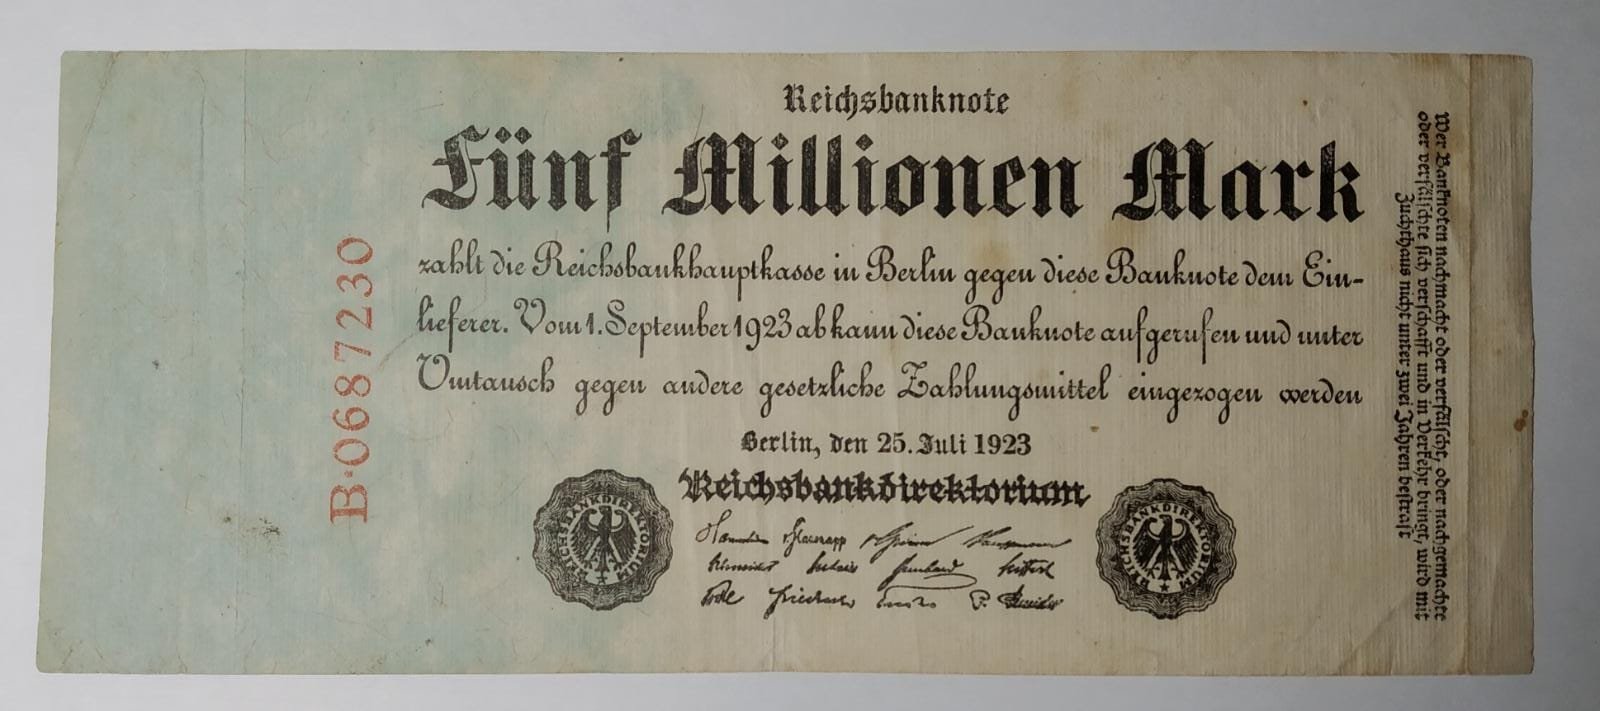 Reichsbanknote
Fünf Millionen Mark
zahlt die Reichsbankhauptkasse in Berlin gegen diese Banknote dem Ein-
lieferer. Vom 1. September 1923 ab kann diese Banknote aufgerufen und unter
Umtausch gegen andere gesetzliche Zahlungsmittel eingezogen werden
Berlin, den 25. Juli 1923
Reichsbankdirektorium
REICHSBANKDIREKTORIUM
REICHSBANKDIREKTORIUM
B·0687230
Wer Banknoten nachmacht oder verfälscht, oder nachgemachte
oder verfälschte sich verschafft und in Verkehr bringt, wird mit
Zuchthaus nicht unter zwei Jahren bestraft